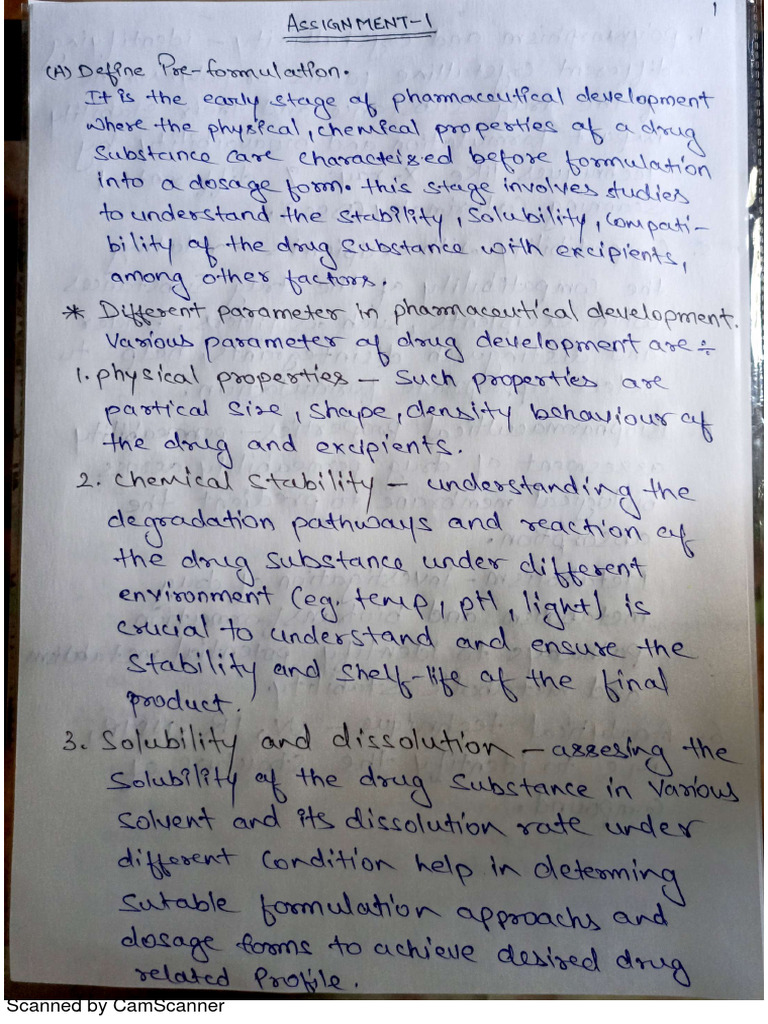 ASSIGNMENT-1
1
(A) Define Pre-formulation.
It is the early stage of pharmaceutical development
where the physical, chemical properties of a drug
Substance care characteized before formulation
into a dosage form. this stage involves studies
to understand the stability, solubility, compati-
bility of the drug substance with excipients,
among other factors.
* Different parameter in pharmaceutical development.
Various parameter of drug development are ÷
1. physical properties - Such properties are
partical size, shape, density behaviour of
the drug and excipients.
2. chemical stability - understanding the
degradation pathways and reaction of
the drug substance under different
environment (eg. temp, pH, light) is
crucial to understand and ensure the
stability and shelf-life of the final
product.
3. Solubility and dissolution - assesing the
Solubility of the drug substance in various
solvent and its dissolution rate under
different condition help in determing
sutable formulation approachs and
dosage forms to achieve desired drug
related profile.
Scanned by CamScanner